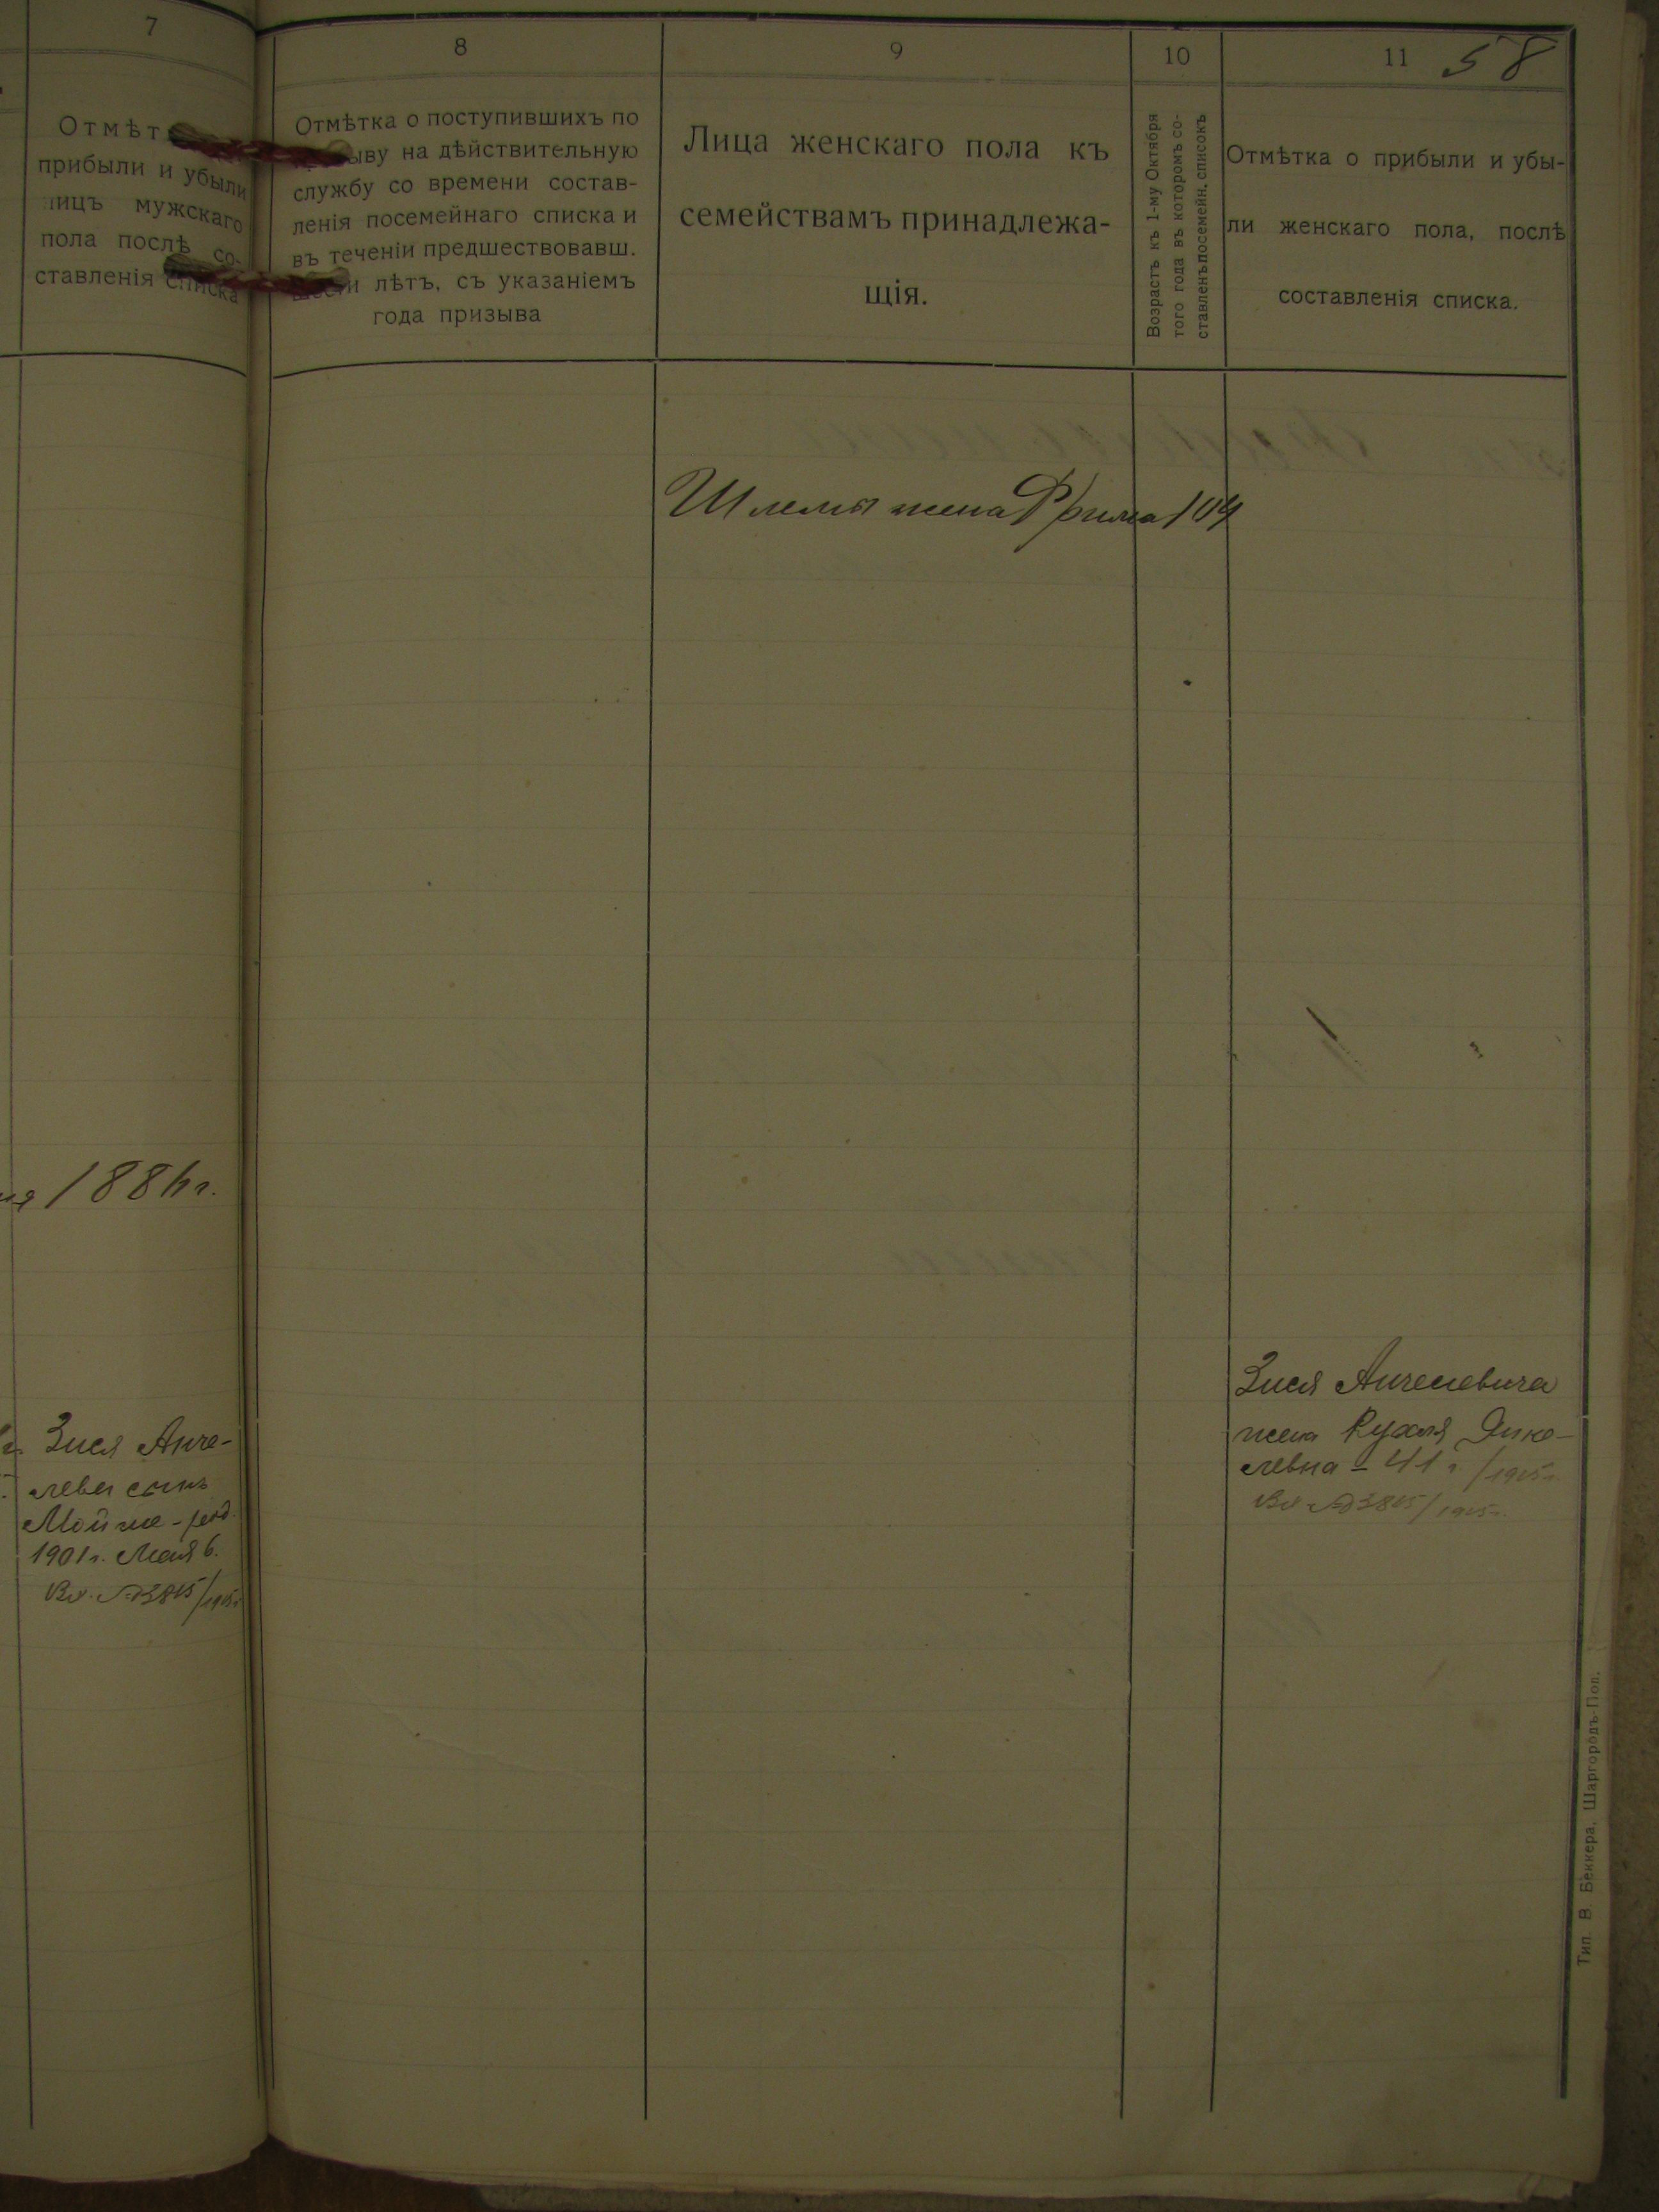 7
Отмѣт
прибыли и убыли
лицъ мужскаго
пола послѣ со-
ставленія списка
1886 г.
Зися Анче-
левъ сынъ
Мойше - род.
1901 г. Мая 6.
Вх. № 3815/1915 г.
8
Отмѣтка о поступившихъ по
ыву на дѣйствительную
службу со времени состав-
ленія посемейнаго списка и
въ теченіи предшествовавш.
шести лѣтъ, съ указаніемъ
года призыва
9
Лица женскаго пола къ
семействамъ принадлежа-
щія.
Шлемы жена Фрима
10
Возрастъ къ 1-му Октября
того года въ которомъ со-
ставленъ посемейн. списокъ
11
58
Отмѣтка о прибыли и убы-
ли женскаго пола, послѣ
составленія списка.
Зися Анчелевича
жена Рухля Янке-
левна - 41 г. /1915 г.
Вх. № 3815/1915 г.
Тип. В. Беккера, Шаргородъ-Под.